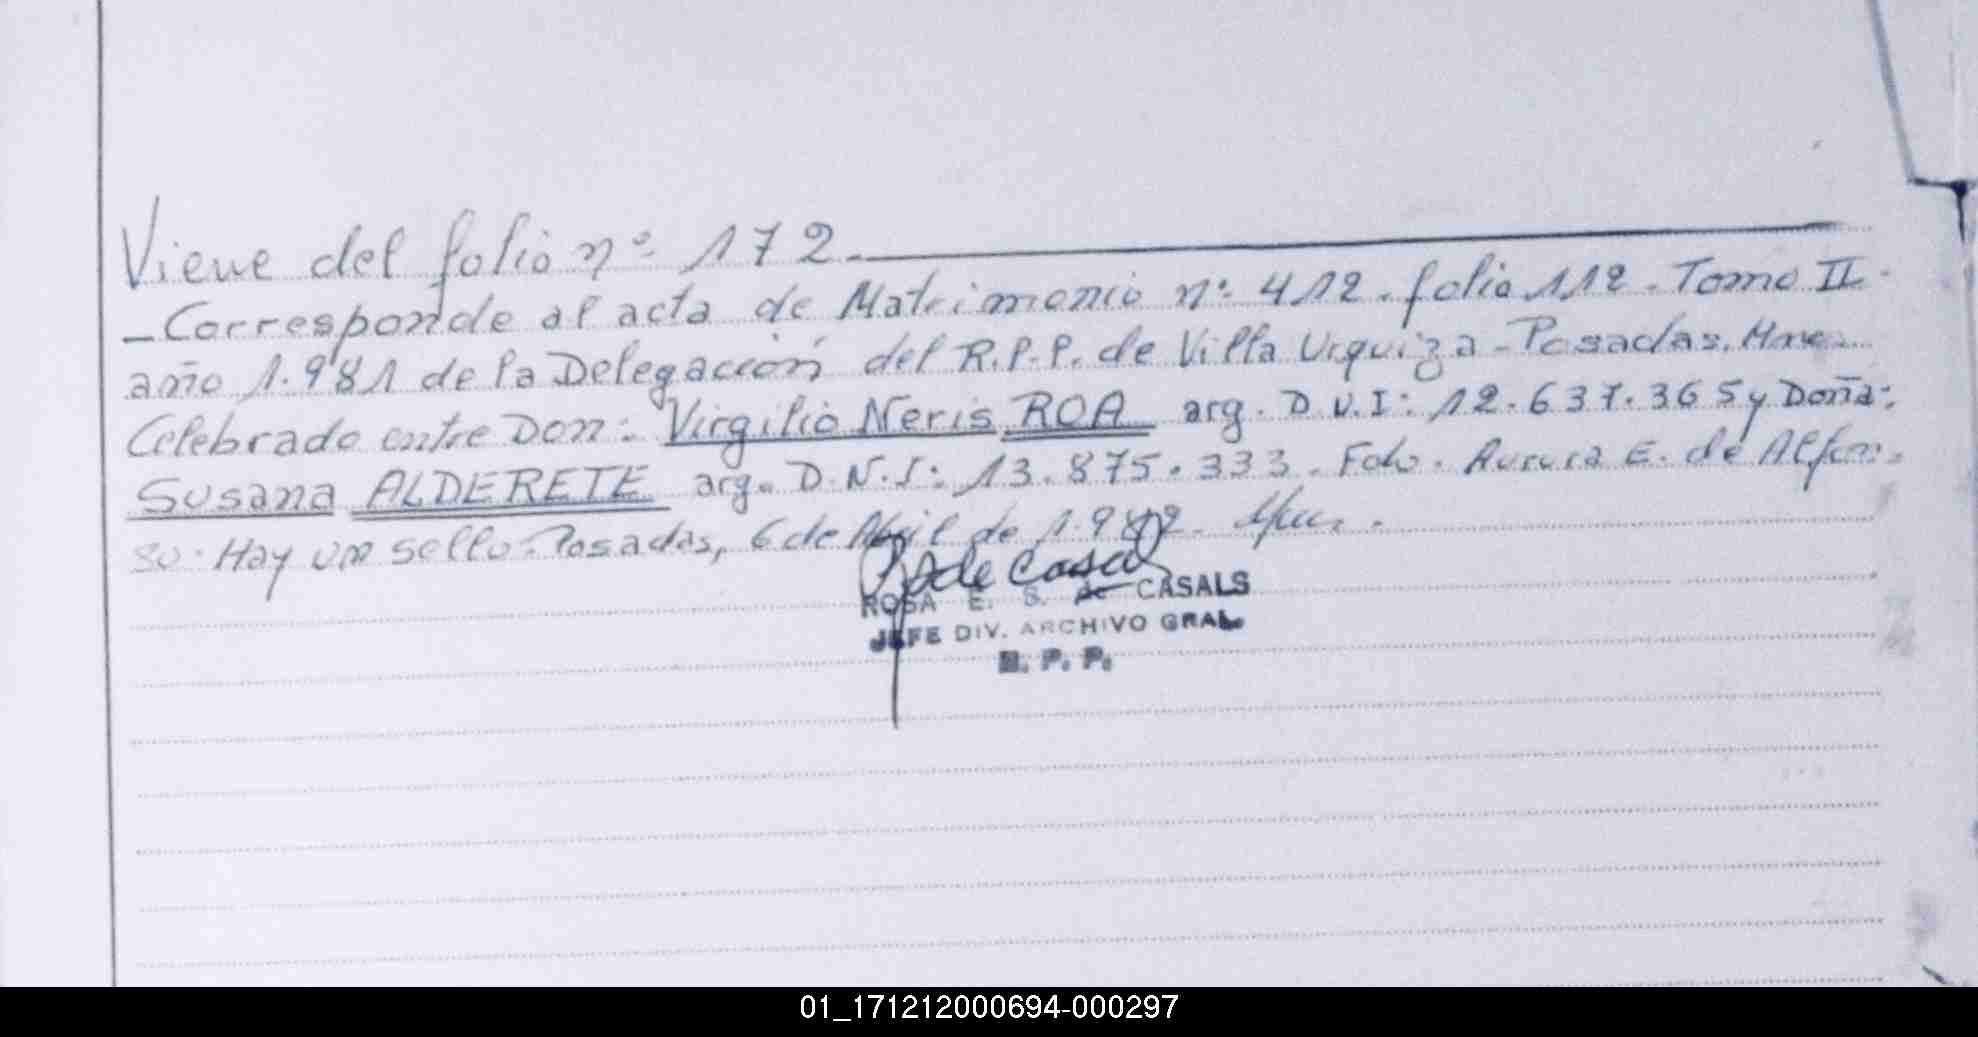 Viene del folio nº 172.
- Corresponde al acta de Matrimonio nº 412. folio 112. Tomo II.
año 1.981 de la Delegación del R.P.P. de Villa Urquiza - Posadas.
Celebrado entre Don: Virgilio Neris ROA arg. D.N.I: 12.637.365 y Doña:
Susana ALDERETE arg. D.N.I: 13.875.333. Fdo. Aurora E. de Alfon-
so. Hay un sello. Posadas, 6 de Abril de 1.982.
ROSA E. S. de CASALS
JEFE DIV. ARCHIVO GRAL.
R. P. P.
01_171212000694-000297